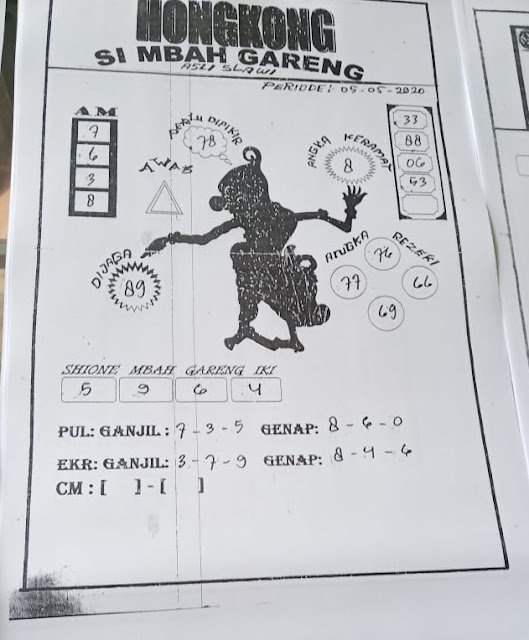 HONGKONG
SI MBAH GARENG
ASLI SLAWI
PERIODE: 05-05-2020
AM
7
6
3
8
PERLU DIPIKIR
78
AWAS
ANGKA KERAMAT
8
33
88
06
53
DIJAGA
89
ANGKA REZEKI
76
77
66
69
SHIONE MBAH GARENG IKI
5 9 6 4
PUL: GANJIL : 7 - 3 - 5 GENAP: 8 - 6 - 0
EKR: GANJIL: 3 - 7 - 9 GENAP: 8 - 4 - 6
CM : [ ] - [ ]